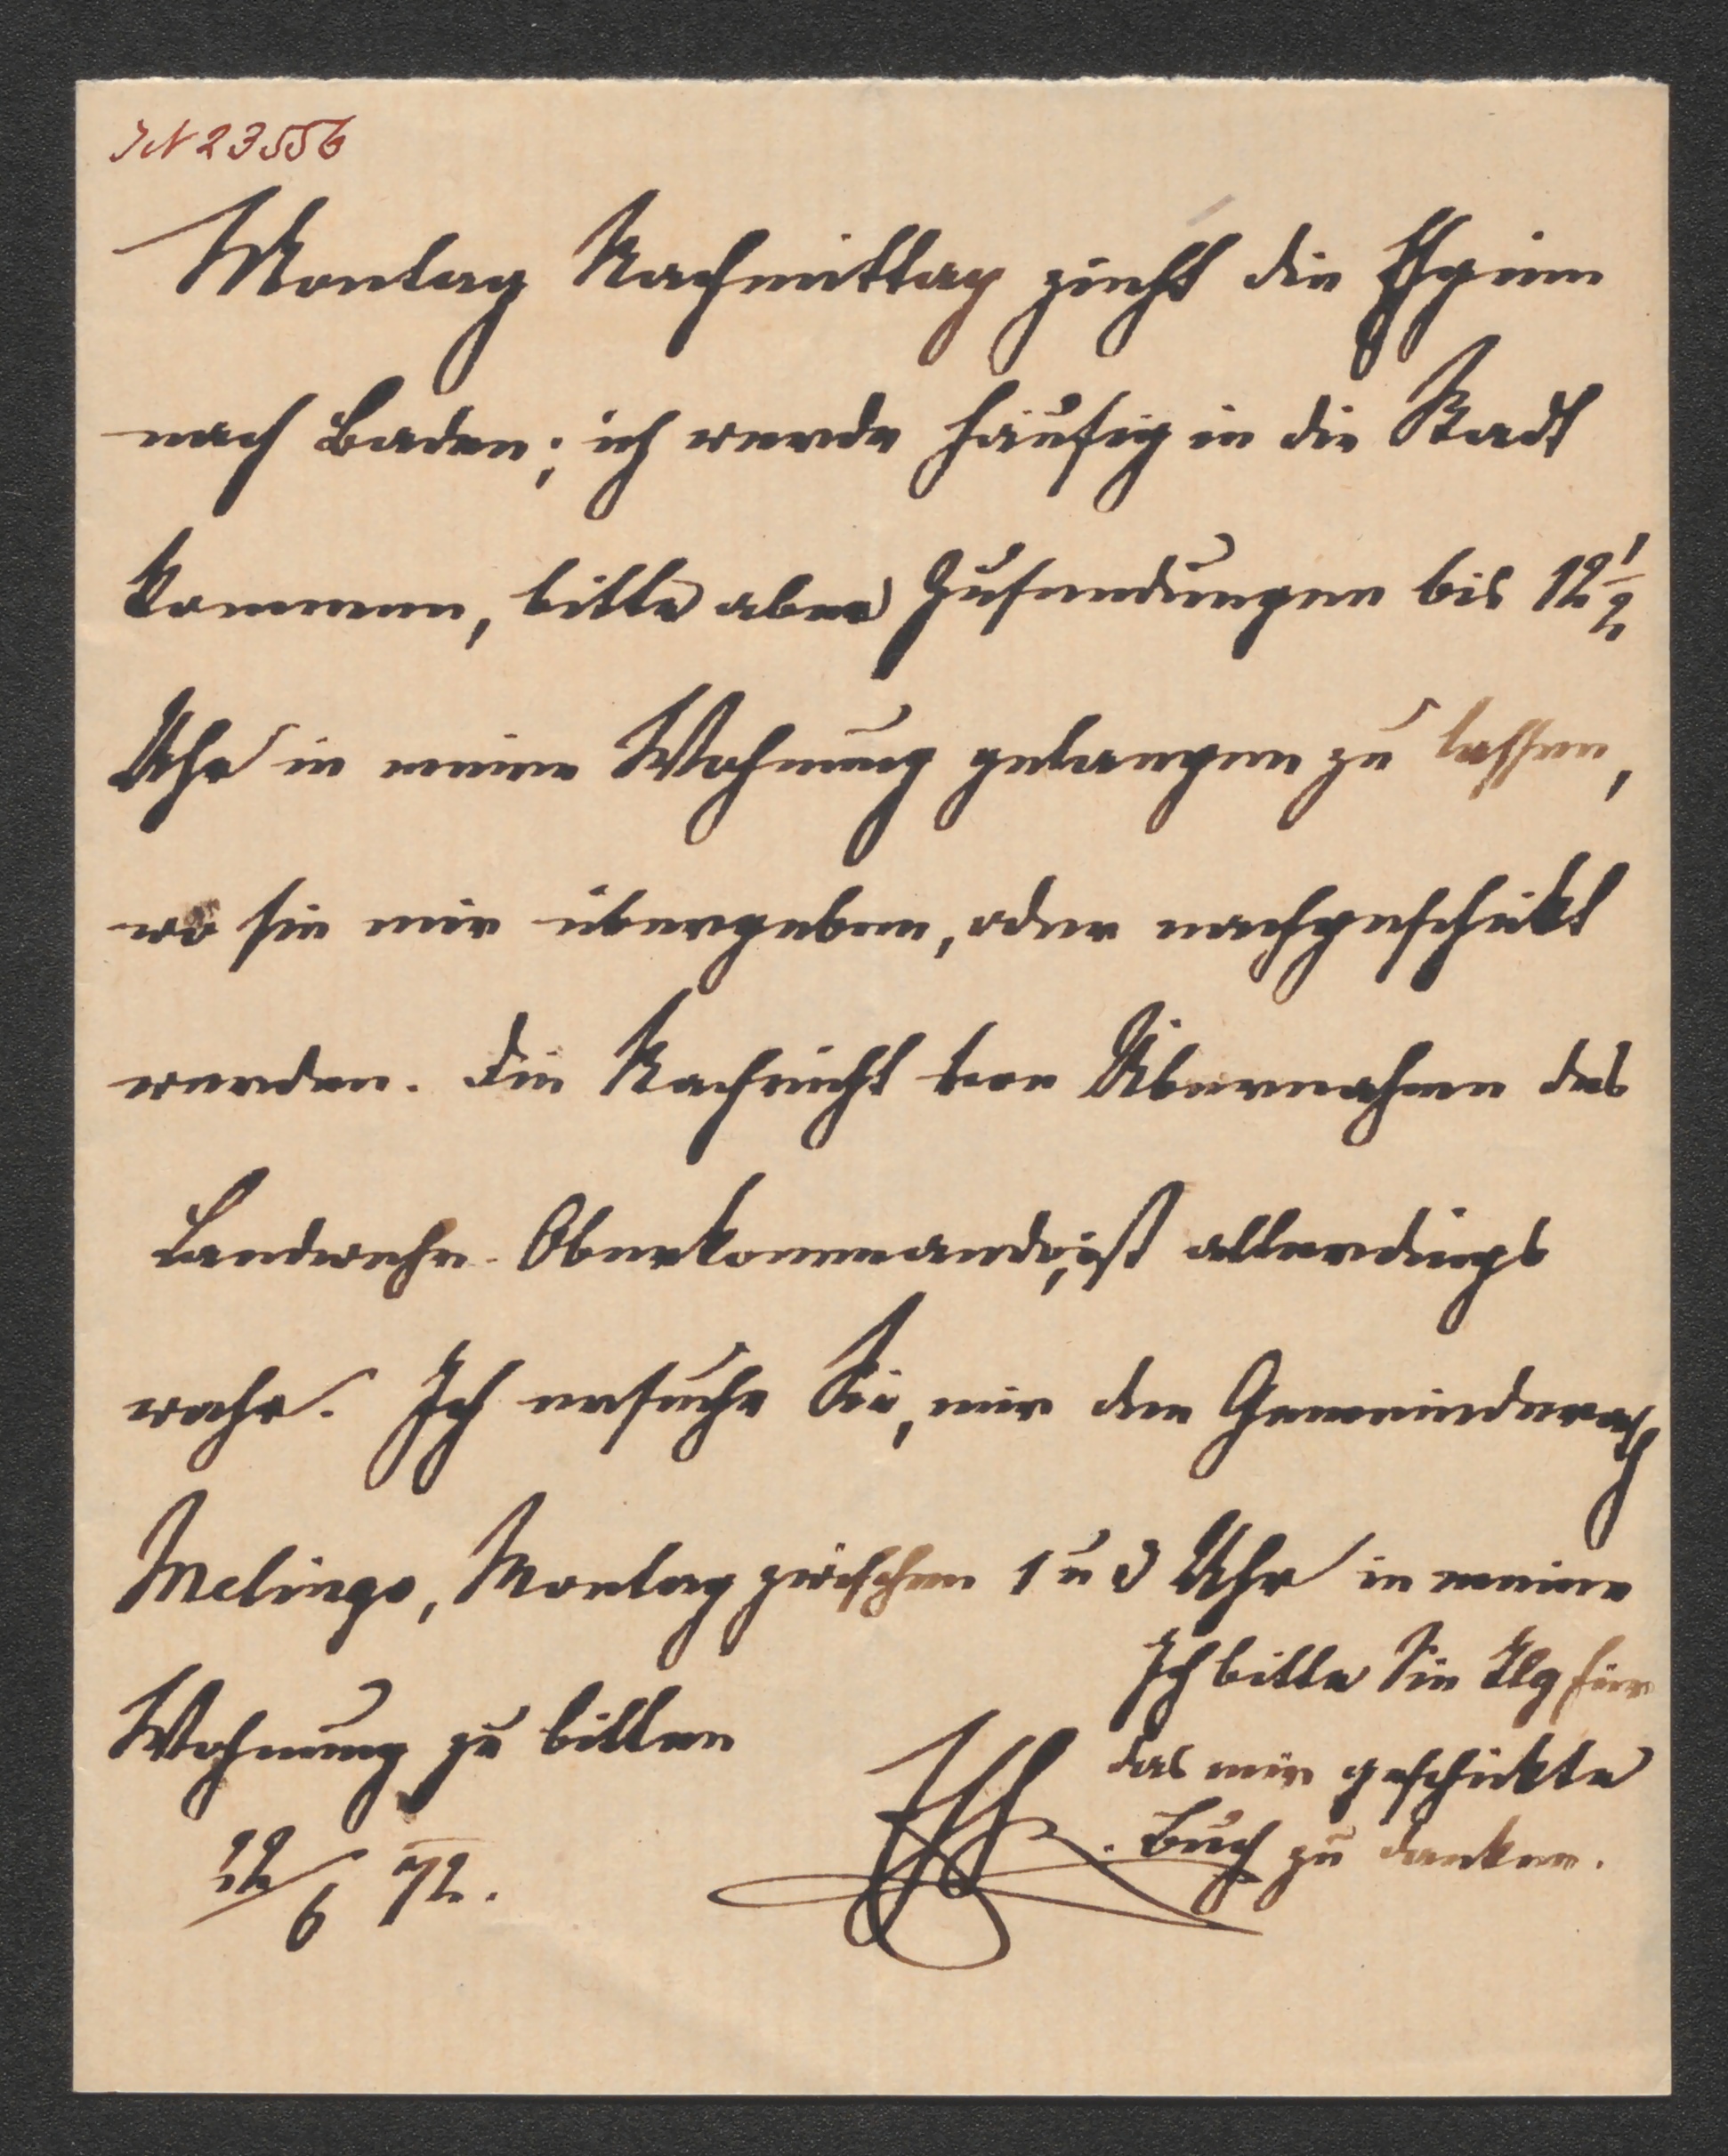 IN 23556
Montag Nachmittag zieht die
nach Baden; ich werde häufig in die Stadt
kommen, bitte aber Zusendungen bis 12 1/2
Uhr in meine Wohnung gelangen zu lassen,
wo sie mir übergeben, oder nachgeschikt
werden. Die Nachricht von Übernahme des
Landwehr-Oberkommando, ist allerdings
wahr. Ich ersuche Sie, mir den Gemeinderath
Melingo, Montag zwischen 1 u 3 Uhr in meine
Wohnung zu bitten
22/6 72.
Ich bitte Sie für
das mir geschikte
Buch zu danken.